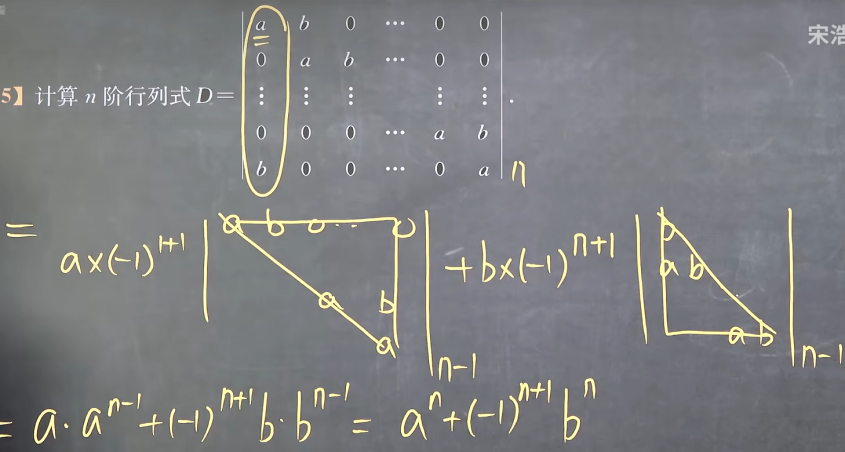 宋浩
5】计算 n 阶行列式 D=
a b 0 ⋯ 0 0
0 a b ⋯ 0 0
⋮ ⋮ ⋮ ⋮ ⋮
0 0 0 ⋯ a b
b 0 0 ⋯ 0 a
. n
= a×(-1)^{1+1} | a b 0 ⋯ 0 a b a |_{n-1} + b×(-1)^{n+1} | b a b a b |_{n-1}
= a·a^{n-1}+(-1)^{n+1}b·b^{n-1} = a^n+(-1)^{n+1}b^n